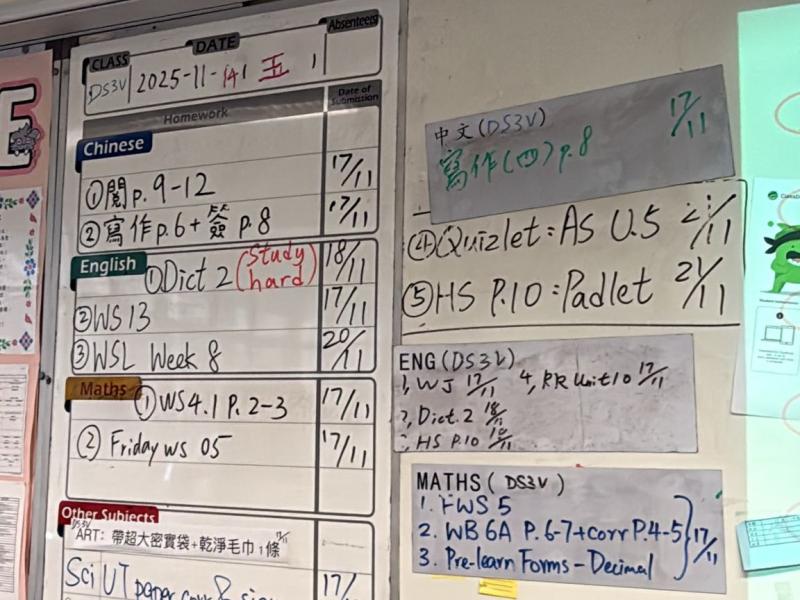 CLASS DATE Absentee(s)
DS3V 2025-11-14 五
Homework Date of Submission
Chinese
①閱p.9-12 17/11
②寫作p.6+簽p.8 17/11
English
①Dict 2 (study hard) 18/11
②WS 13 17/11
③WSL Week 8 20/11
Maths
①WS4.1 P.2-3 17/11
②Friday WS 05 17/11
Other Subjects
DS3V
ART: 帶超大密實袋+乾淨毛巾1條 17/11
Sci UT paper corr & 17/11
中文(DS3V) 17/11
寫作(四)p.8
④Quizlet: AS U.5 21/11
⑤HS P.10: Padlet 21/11
ENG(DS3V)
1, WJ 17/11 4, RR Unit 10 17/11
2, Dict. 2 18/11
3, HS P.10
MATHS( DS3V )
1. FWS 5
2. WB 6A P.6-7+corr P.4-5 17/11
3. Pre-learn Forms - Decimal